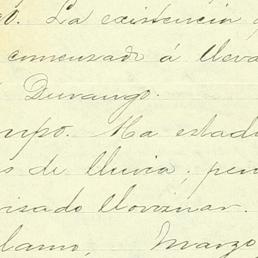 o. La existencia
comensado á lleva
Durango.
mpo. Ha estad
s de lluvia; per
isado lloviznar.
lamo, Marzo